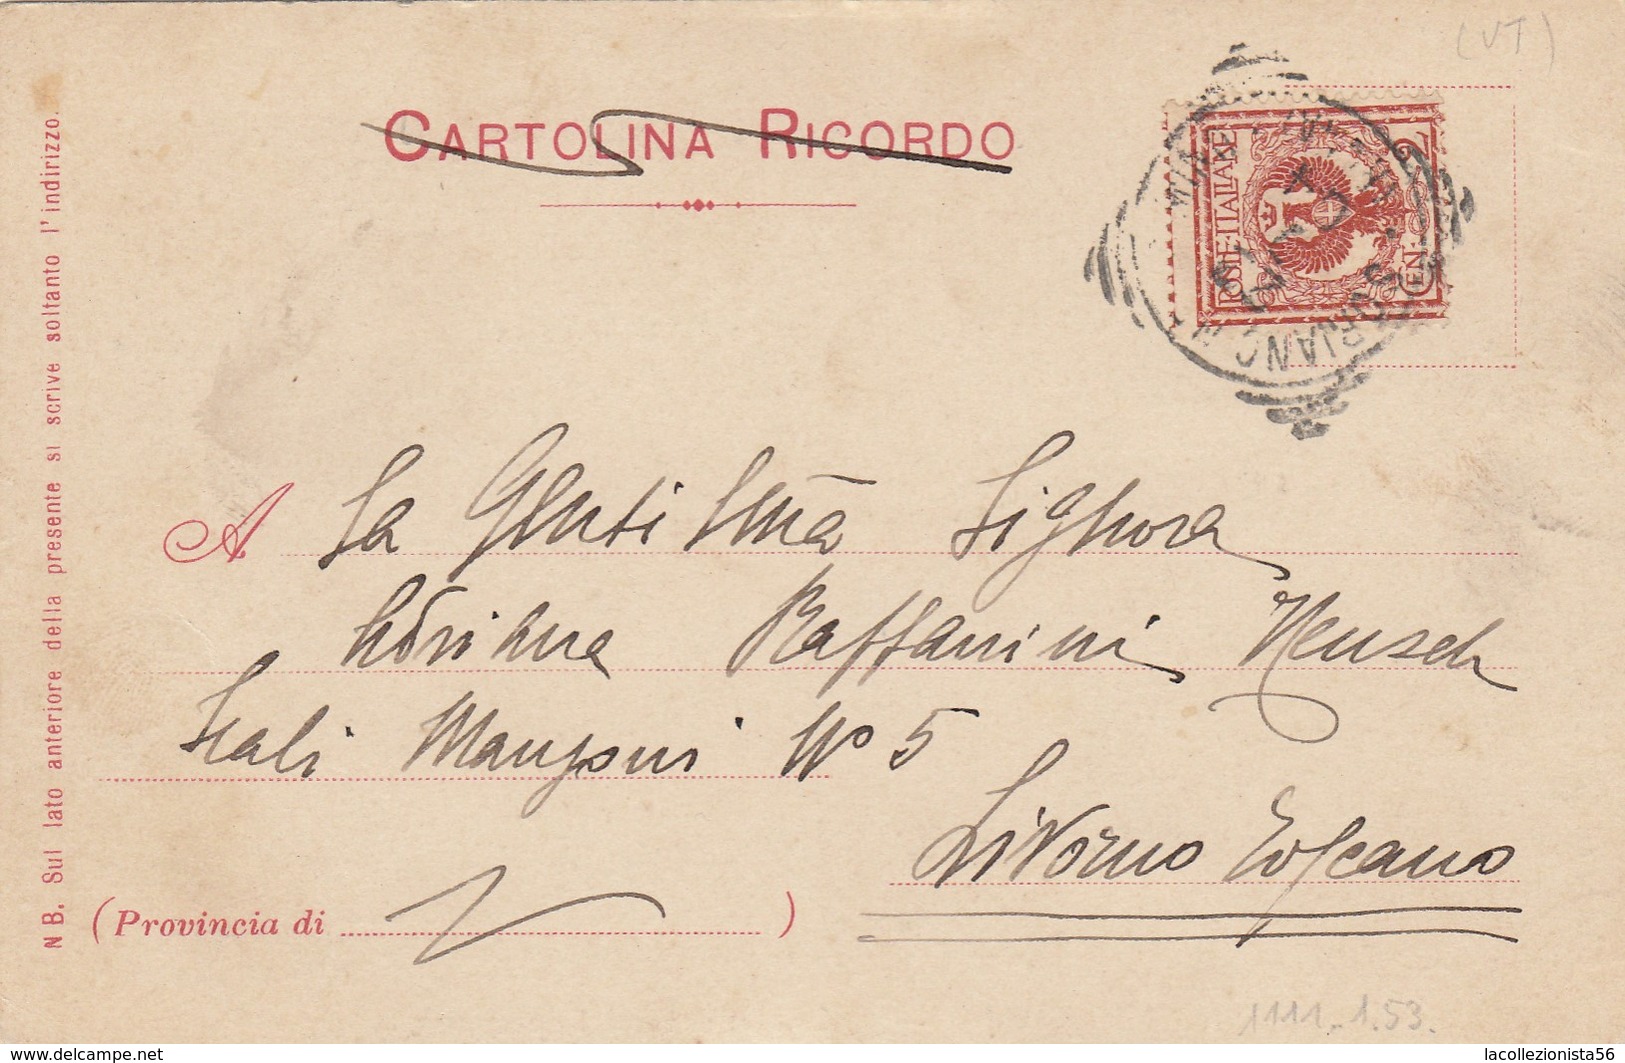 (VT)
CARTOLINA RICORDO
POSTE ITALIANE
CENT. 2
A La Gentilma Signora
Raffanini Heusch
Scali Manzoni No 5
Livorno Toscano
(Provincia di )
N B. Sul lato anteriore della presente si scrive soltanto l'indirizzo.
1111-1.53.
delcampe.net
lacollezionista56